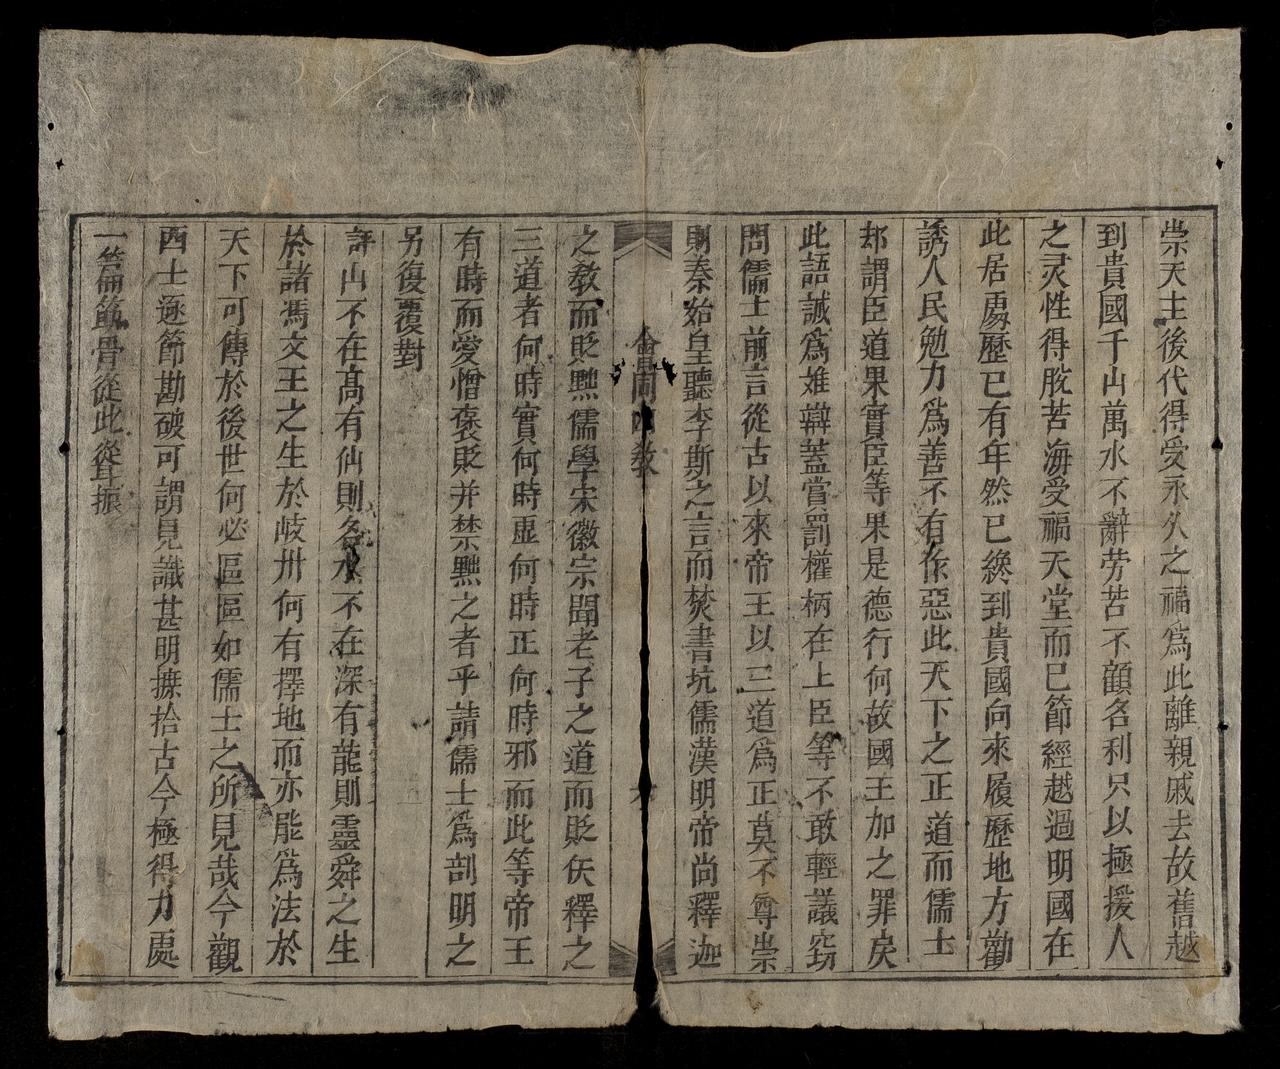 崇天主後代得受永久之福爲此離親戚去故舊越
到貴國千山萬水不辭劳苦不顧名利只以極援人
之灵性得脫苦海受福天堂而已節經越過明國在
此居處歷已有年然已纔到貴國向來履歷地方勸
誘人民勉力爲善不有作惡此天下之正道而儒士
却謂臣道果實臣等果是德行何故國王加之罪戾
此語誠爲难辯蓋賞罰權柄在上臣等不敢輕議窃
問儒士前言從古以來帝王以三道爲正莫不尊崇
則秦始皇聽李斯之言而焚書坑儒漢明帝尚釋迦
會同四教
之教而貶黜儒學宋徽宗聞老子之道而貶佚釋之
三道者何時實何時虛何時正何時邪而此等帝王
有時而愛憎褒貶并禁黜之者乎請儒士爲剖明之
另復覆對
評山不在髙有仙則名水不在深有龍則靈舜之生
於諸馮文王之生於岐州何有擇地而亦能爲法於
天下可傳於後世何必區區如儒士之所見哉今觀
西士逐節勘破可謂見識甚明摭拾古今極得力處
一篇筋骨從此聳振